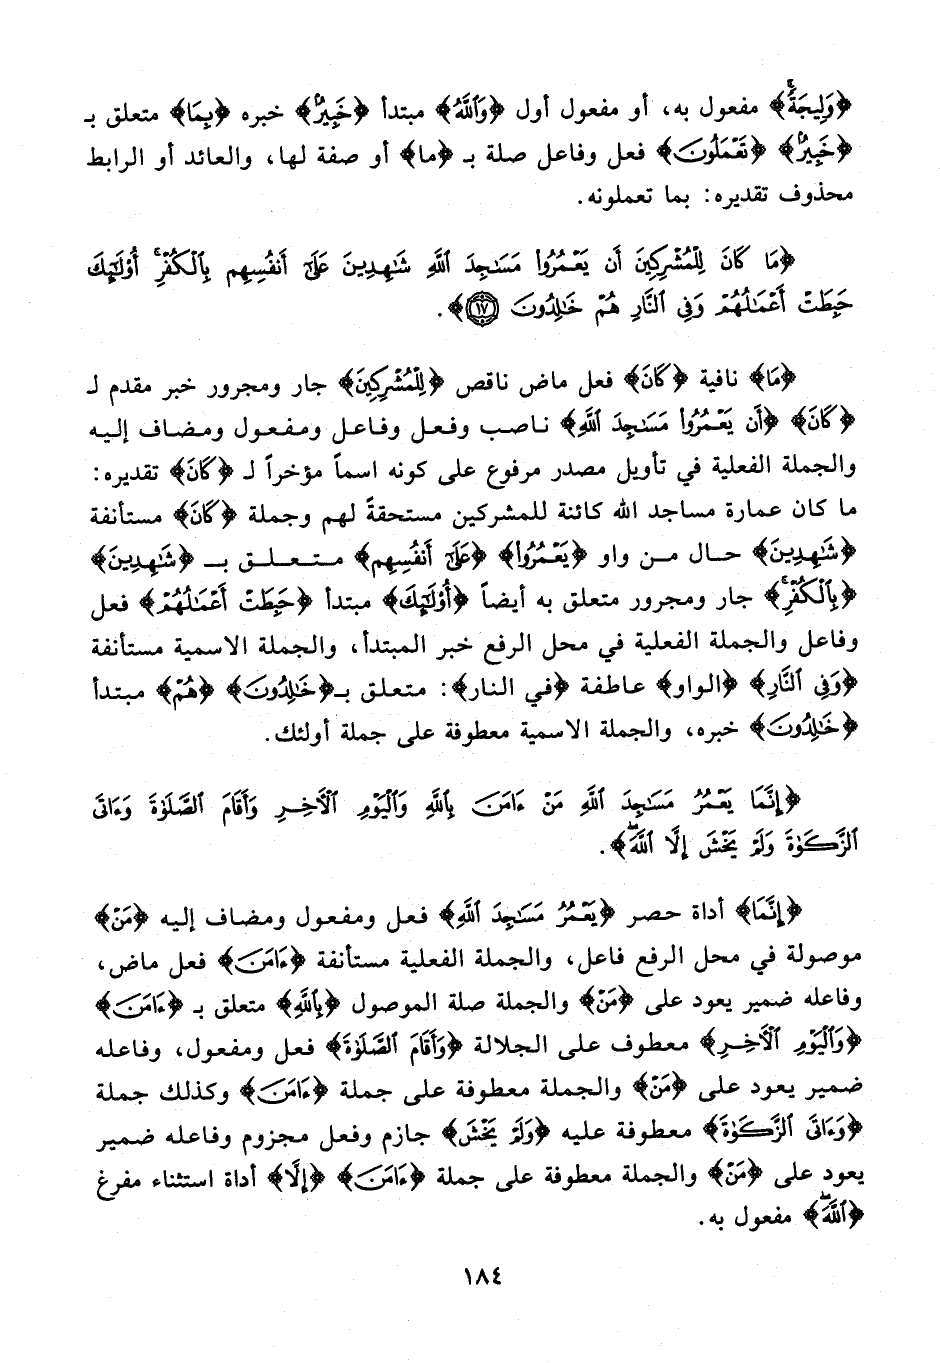 ﴿وَلِيجَةً﴾ مفعول به، أو مفعول أول ﴿وَاللَّهُ﴾ مبتدأ ﴿خَبِيرٌ﴾ خبره ﴿بِمَا﴾ متعلق بـ
﴿خَبِيرٌ﴾ ﴿تَعْمَلُونَ﴾ فعل وفاعل صلة بـ ﴿ما﴾ أو صفة لها، والعائد أو الرابط
محذوف تقديره: بما تعملونه.
﴿مَا كَانَ لِلْمُشْرِكِينَ أَن يَعْمُرُوا۟ مَسَٰجِدَ ٱللَّهِ شَٰهِدِينَ عَلَىٰٓ أَنفُسِهِم بِٱلْكُفْرِ ۚ أُو۟لَٰٓئِكَ
حَبِطَتْ أَعْمَٰلُهُمْ وَفِى ٱلنَّارِ هُمْ خَٰلِدُونَ ١٧﴾.
﴿مَا﴾ نافية ﴿كَانَ﴾ فعل ماض ناقص ﴿لِلْمُشْرِكِينَ﴾ جار ومجرور خبر مقدم لـ
﴿كَانَ﴾ ﴿أَن يَعْمُرُوا۟ مَسَٰجِدَ ٱللَّهِ﴾ ناصب وفعل وفاعل ومفعول ومضاف إليه
والجملة الفعلية في تأويل مصدر مرفوع على كونه اسماً مؤخراً لـ ﴿كَانَ﴾ تقديره:
ما كان عمارة مساجد الله كائنة للمشركين مستحقةً لهم وجملة ﴿كَانَ﴾ مستأنفة
﴿شَٰهِدِينَ﴾ حال من واو ﴿يَعْمُرُوا۟﴾ ﴿عَلَىٰٓ أَنفُسِهِم﴾ متعلق بـ ﴿شَٰهِدِينَ﴾
﴿بِٱلْكُفْرِ ۚ﴾ جار ومجرور متعلق به أيضاً ﴿أُو۟لَٰٓئِكَ﴾ مبتدأ ﴿حَبِطَتْ أَعْمَٰلُهُمْ﴾ فعل
وفاعل والجملة الفعلية في محل الرفع خبر المبتدأ، والجملة الاسمية مستأنفة
﴿وَفِى ٱلنَّارِ﴾ ﴿الواو﴾ عاطفة ﴿في النار﴾: متعلق بـ﴿خَٰلِدُونَ﴾ ﴿هُمْ﴾ مبتدأ
﴿خَٰلِدُونَ﴾ خبره، والجملة الاسمية معطوفة على جملة أولئك.
﴿إِنَّمَا يَعْمُرُ مَسَٰجِدَ ٱللَّهِ مَنْ ءَامَنَ بِٱللَّهِ وَٱلْيَوْمِ ٱلْأَخِرِ وَأَقَامَ ٱلصَّلَوٰةَ وَءَاتَى
ٱلزَّكَوٰةَ وَلَمْ يَخْشَ إِلَّا ٱللَّهَ ۖ﴾.
﴿إِنَّمَا﴾ أداة حصر ﴿يَعْمُرُ مَسَٰجِدَ ٱللَّهِ﴾ فعل ومفعول ومضاف إليه ﴿مَنْ﴾
موصولة في محل الرفع فاعل، والجملة الفعلية مستأنفة ﴿ءَامَنَ﴾ فعل ماض،
وفاعله ضمير يعود على ﴿مَنْ﴾ والجملة صلة الموصول ﴿بِٱللَّهِ﴾ متعلق بـ ﴿ءَامَنَ﴾
﴿وَٱلْيَوْمِ ٱلْأَخِرِ﴾ معطوف على الجلالة ﴿وَأَقَامَ ٱلصَّلَوٰةَ﴾ فعل ومفعول، وفاعله
ضمير يعود على ﴿مَنْ﴾ والجملة معطوفة على جملة ﴿ءَامَنَ﴾ وكذلك جملة
﴿وَءَاتَى ٱلزَّكَوٰةَ﴾ معطوفة عليه ﴿وَلَمْ يَخْشَ﴾ جازم وفعل مجزوم وفاعله ضمير
يعود على ﴿مَنْ﴾ والجملة معطوفة على جملة ﴿ءَامَنَ﴾ ﴿إِلَّا﴾ أداة استثناء مفرغ
﴿ٱللَّهَ ۖ﴾ مفعول به.
١٨٤